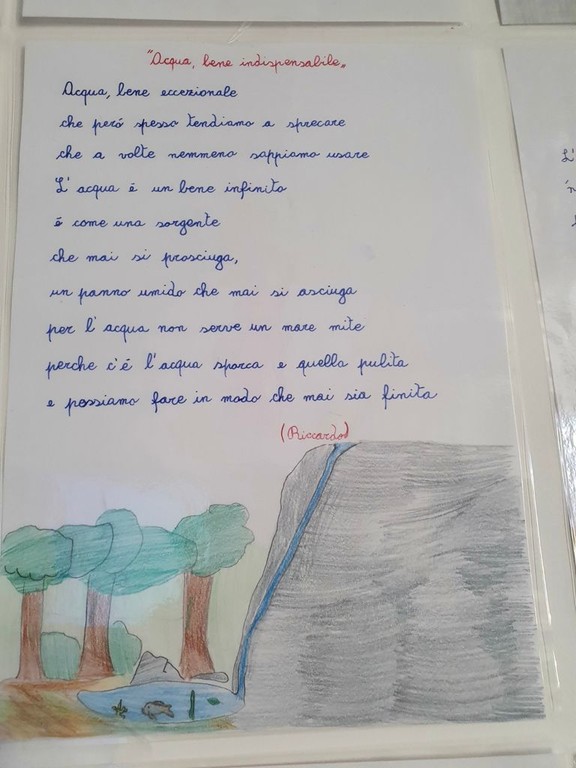 "Acqua, bene indispensabile"
Acqua, bene eccezionale
che peró spesso tendiamo a sprecare
che a volte nemmeno sappiamo usare
L'acqua é un bene infinito
é come una sorgente
che mai si prosciuga,
un panno umido che mai si asciuga
per l'acqua non serve un mare mite
perche c'é l'acqua sporca e quella pulita
e possiamo fare in modo che mai sia finita
(Riccardo)
L'